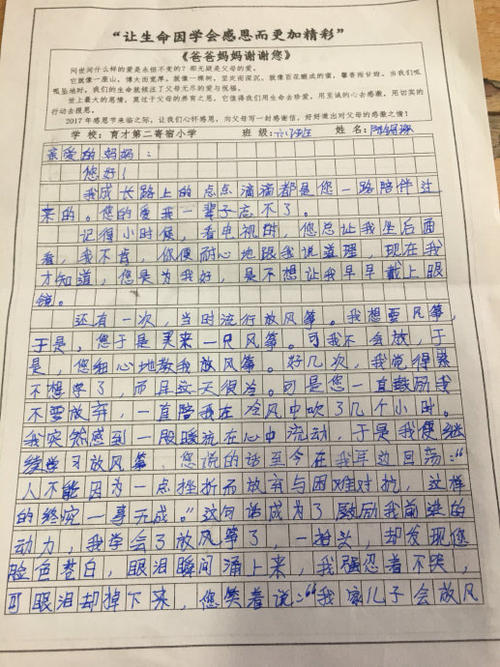 “让生命因学会感恩而更加精彩”
《爸爸妈妈谢谢您》
问世间什么样的爱是永恒不变的？那无疑是父母的爱。
它就像一座山，博大而宽厚，就像一棵树，坚实而深沉，就像百花酿成的蜜，馨香而甘甜。当我们呱
呱坠地时，我们的生命就倾注了父母无尽的爱与祝福。
世上最大的恩情，莫过于父母的养育之恩，它值得我们用生命去珍爱，用至诚的心去感激，用切实的
行动去报恩。
2017年感恩节来临之际，让我们心怀感恩，向父母写一封感谢信，好好道出对父母的感激之情！
学校：育才第二寄宿小学 班级： 姓名：
亲爱的妈妈：
您好！
我成长路上的点点滴滴都是您一路陪伴过
来的。您的爱我一辈子忘不了。
记得小时候，看电视时，您总让我坐后面
看，我不肯，你便耐心地跟我说道理，现在我
才知道，您是为我好，是不想让我早早戴上眼
镜。
还有一次，当时流行放风筝。我想要风筝，
于是，您于是买来一只风筝。可我不会放，于
是，您细心地教我放风筝。好几次，我觉得累
不想学了，而且天很冷。可是您一直鼓励我
不要放弃，一直陪我在冷风中吹了几个小时。
我突然感到一股暖流在心中流动，于是我便继
续学习放风筝，您说的话至今在我耳边回荡：“
人不能因为一点挫折而放弃与困难对抗，这样
的终究一事无成。”这句话成为了鼓励我前进的
动力，我学会了放风筝了，一抬头，却发现您
脸色苍白，眼泪瞬间涌上来，我强忍着不哭，
可眼泪却掉下来，您笑着说：“我家儿子会放风